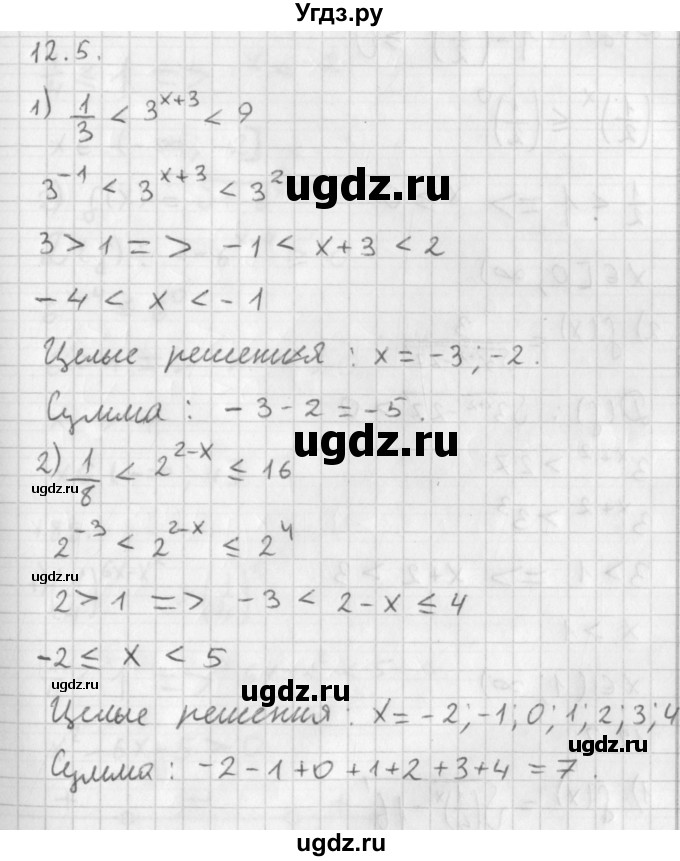 Угдз.ру
12.5.
1) 1/3 < 3^(x+3) < 9
3^(-1) < 3^(x+3) < 3^2
ugdz.ru
3 > 1 => -1 < x+3 < 2
-4 < x < -1
Целые решения : x = -3; -2.
Сумма : -3-2 = -5.
ugdz.ru
2) 1/8 < 2^(2-x) ≤ 16
ugdz.ru
2^(-3) < 2^(2-x) ≤ 2^4
ugdz.ru
2 > 1 => -3 < 2-x ≤ 4
-2 ≤ x < 5
ugdz.ru
ugdz.ru
Целые решения : x = -2; -1; 0; 1; 2; 3; 4
Сумма : -2-1+0+1+2+3+4 = 7.
ugdz.ru
ugdz.ru